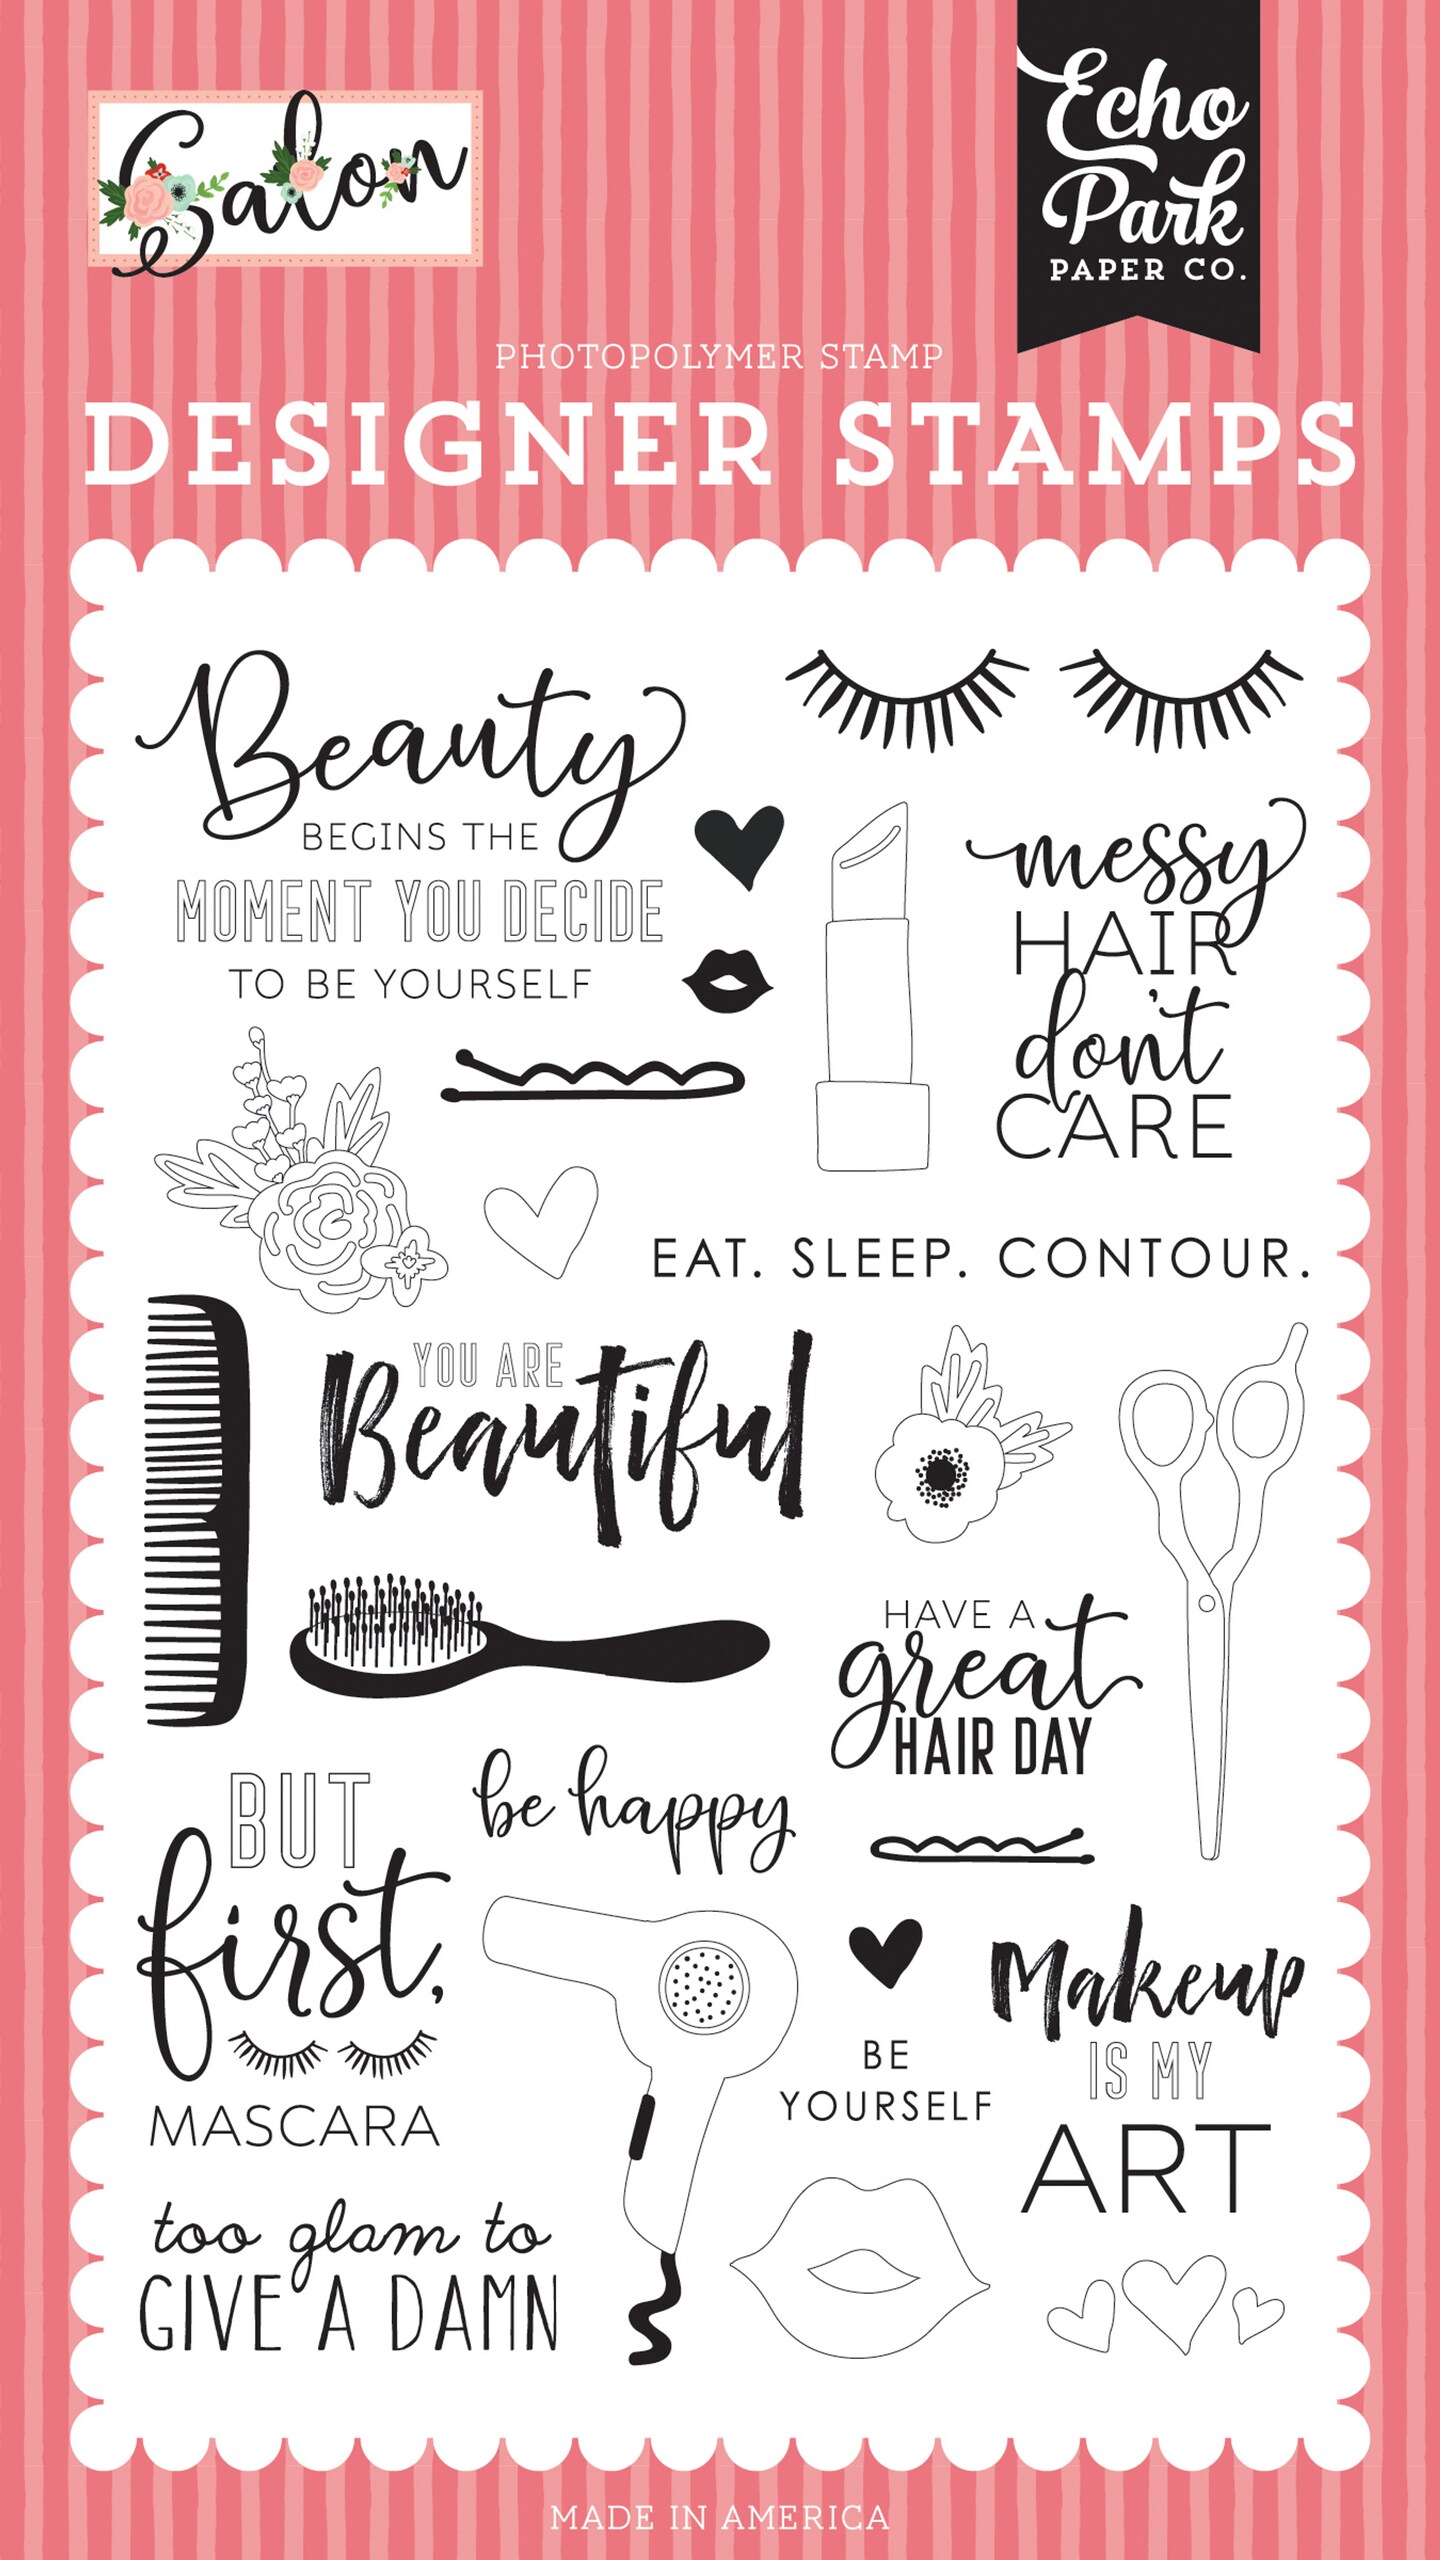 Salon
Echo
Park
PAPER CO.
PHOTOPOLYMER STAMP
DESIGNER STAMPS
Beauty
BEGINS THE
MOMENT YOU DECIDE
TO BE YOURSELF
messy
HAIR
don't
CARE
EAT. SLEEP. CONTOUR.
YOU ARE
Beautiful
HAVE A
great
HAIR DAY
be happy
BUT
first,
MASCARA
BE
YOURSELF
Makeup
IS MY
ART
too glam to
GIVE A DAMN
MADE IN AMERICA